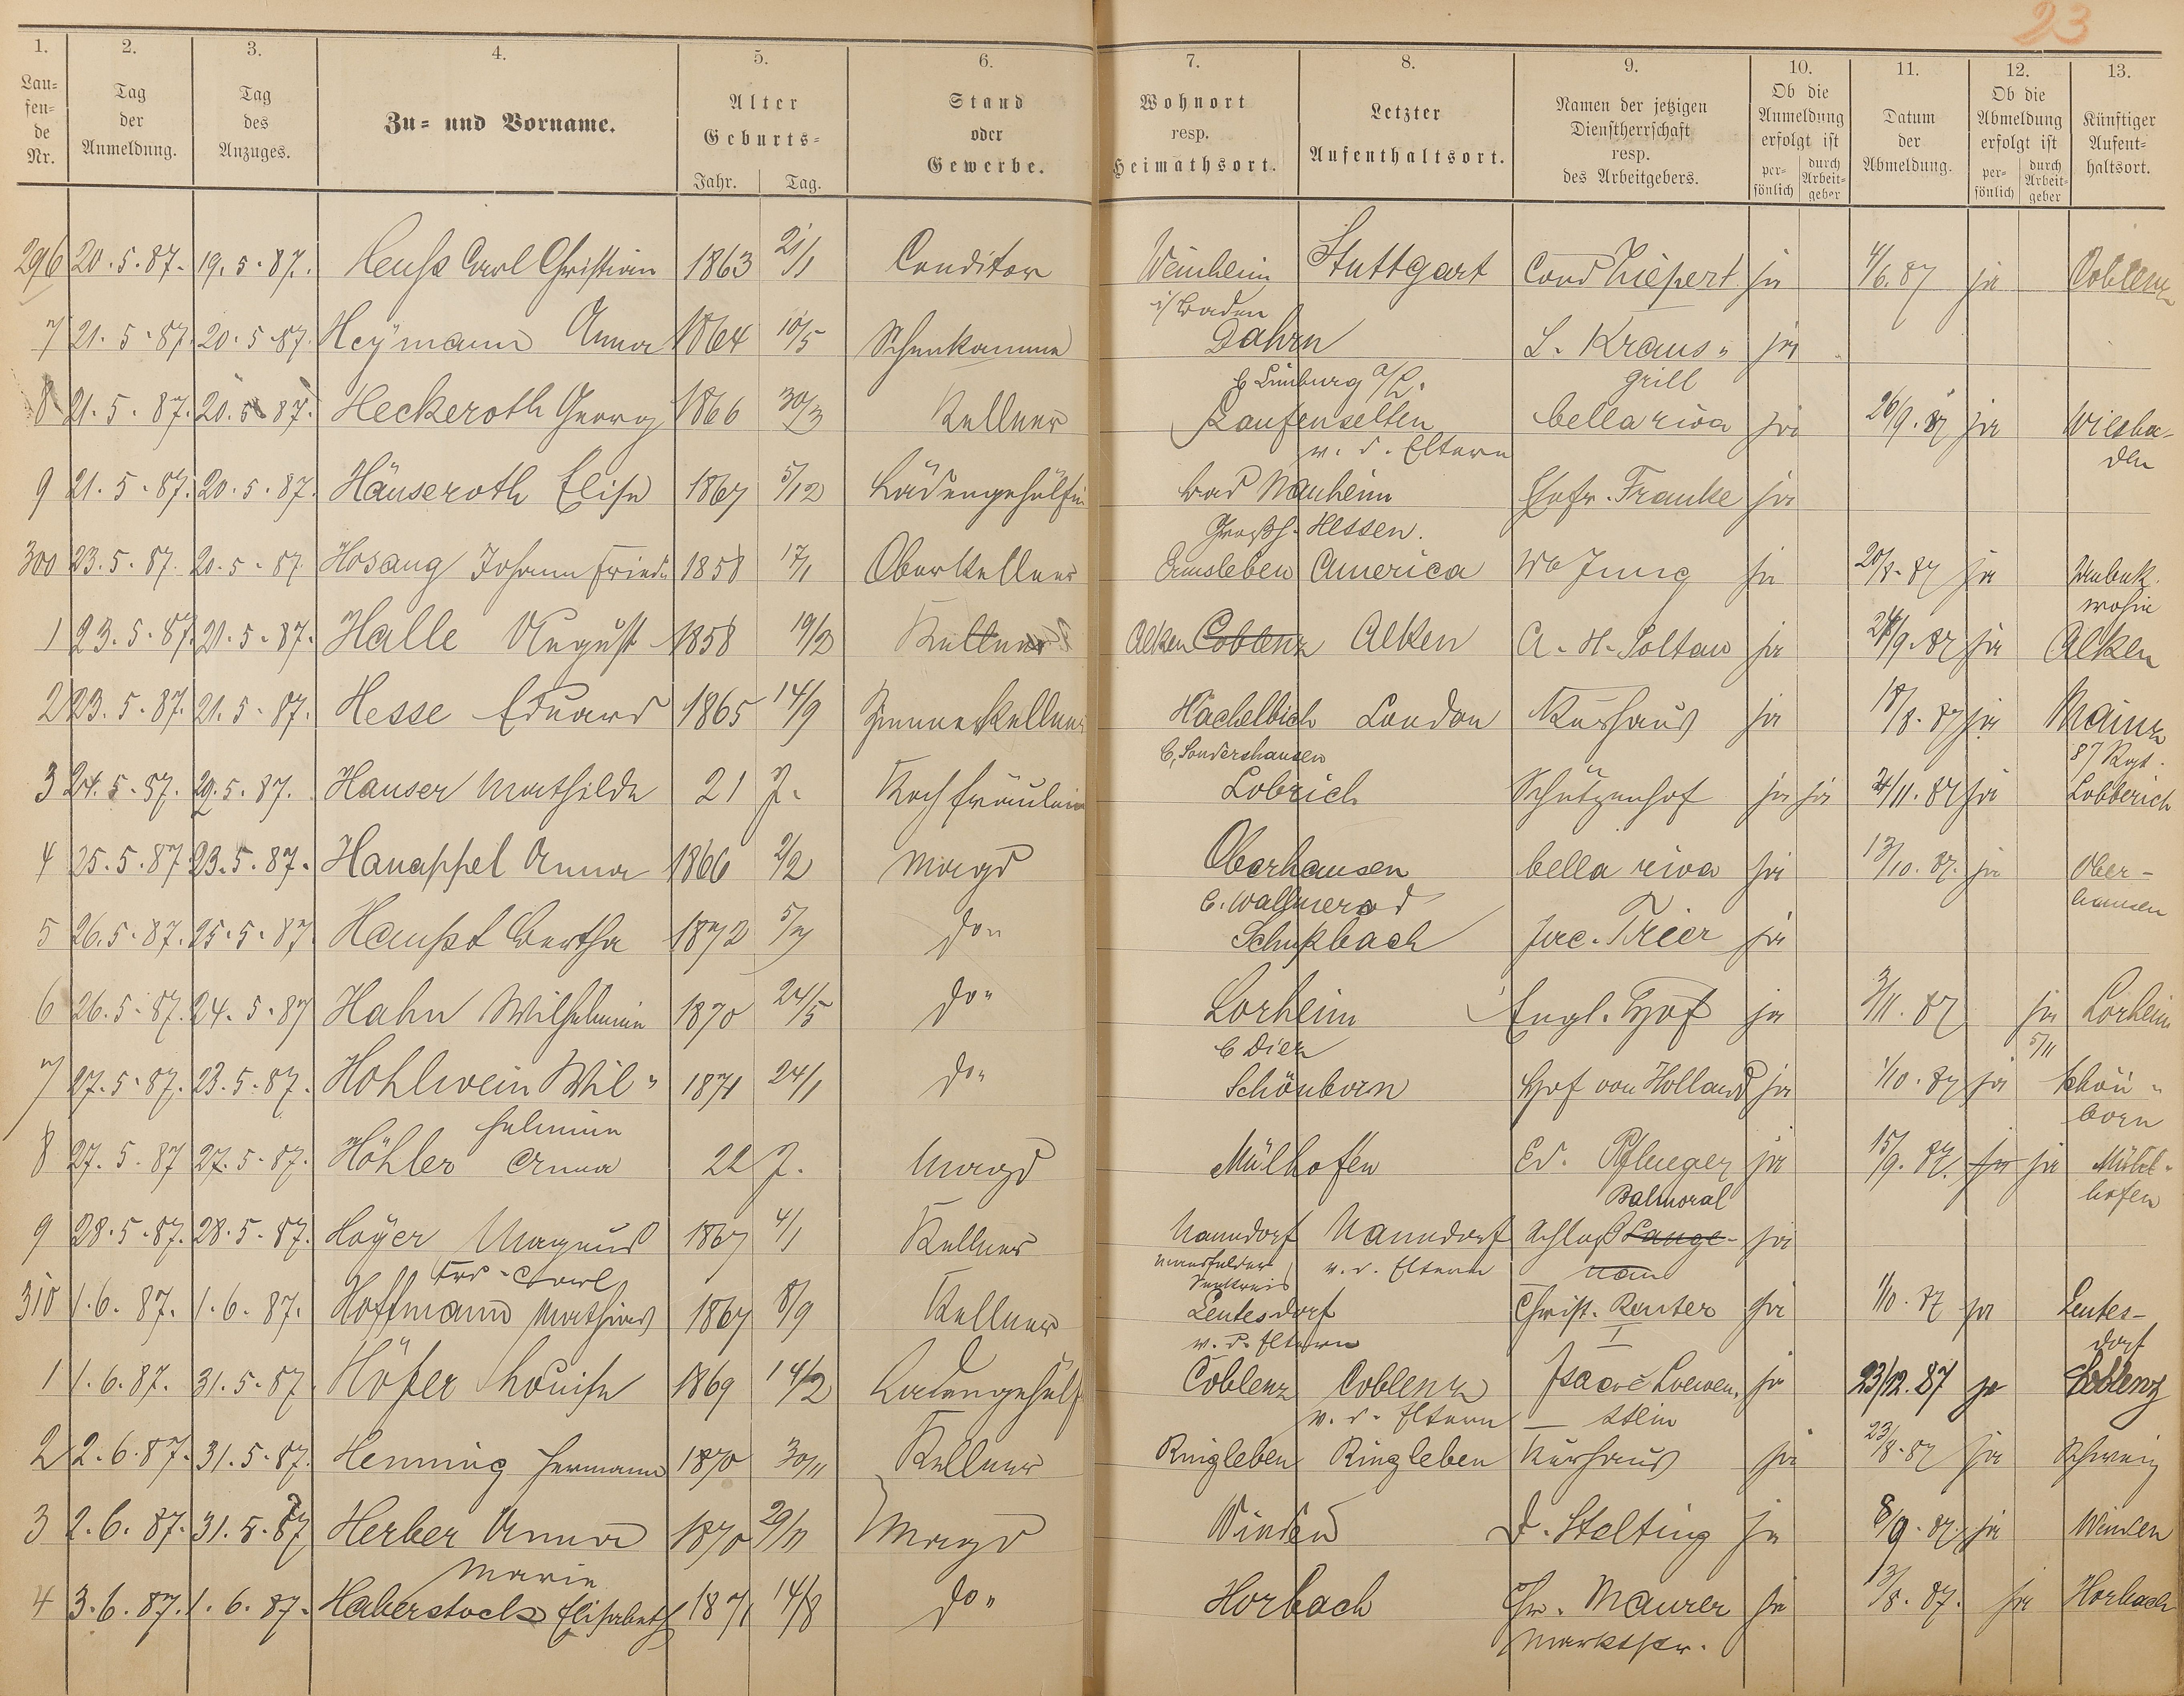 23
1. 2. 3. 4. 5. 6. 7. 8. 9. 10. 11. 12. 13.
Lau-
fen-
de
Nr.
Tag
der
Anmeldung.
Tag
des
Anzuges.
Zu- und Vorname.
Alter
Geburts-
Jahr. Tag.
Stand
oder
Gewerbe.
Wohnort
resp.
Heimathsort.
Letzter
Aufenthaltsort.
Namen der jetzigen
Dienstherrschaft
resp.
des Arbeitgebers.
Ob die
Anmeldung
erfolgt ist
per-
sönlich
durch
Arbeit-
geber
Datum
der
Abmeldung.
Ob die
Abmeldung
erfolgt ist
per-
sönlich
durch
Arbeit-
geber
Künftiger
Aufent-
haltsort.
296 20.5.87. 19.5.87. Heuß Carl Christian 1863 21/1 Conditor Weinheim Stuttgart Cond Liepert ja 4/6.87 ja Coblenz
i/Baden
7 21.5.87. 20.5.87. Heymann Anna 1864 10/5 Schenkamme Dahrn L. Kraus- ja
b Limburg a/L. grill
8 21.5.87. 20.5.87. Heckeroth Georg 1866 30/3 Kellner Laufenselten bella riva ja 26/9.87 ja Wiesba-
v. d. Eltern den
9 21.5.87. 20.5.87. Häuseroth Elise 1867 5/12 Ladengehülfin Bad Nauheim Hofr. Franke ja
Großh. Hessen.
300 23.5.87. 20.5.87. Hosang Johann Friedr 1858 17/1 Oberkellner Ermsleben America Wb Jung ja 20/8.87 ja Unbek.
wohin
1 23.5.87. 21.5.87. Halle August 1858 19/2 Kellner Alken Coblenz Alken A. H. Soltau ja 24/9.87 ja Alken
2 23.5.87. 21.5.87. Hesse Eduard 1865 14/9 Zimmerkellner Hachelbich London Kurhaus ja 18/8.87 ja Mainz
b, Sondershausen 87 Rgt.
3 24.5.87. 29.5.87. Hauser Mathilde 21 J. Kochfräulein Lobrich Schützenhof ja ja 24/11.87 ja Lobberich
4 25.5.87 23.5.87. Hanappel Anna 1866 2/2 Magd Oberhausen bella riva ja 13/10.87. ja Ober-
b. Wallmerod hausen
5 26.5.87. 25.5.87. Haupt Bertha 1872 5/7 do" Schupbach Jac. Trier ja
6 26.5.87. 24.5.87 Hahn Wilhelmine 1870 24/5 do" Lorheim Engl. Hof ja 3/11.87 ja Lorheim
b Diez 5/11
7 27.5.87. 23.5.87. Hohlwein Wil- 1871 24/1 do" Schönborn Hof von Holland ja 1/10.87 ja Schön-
helmine born
8 27.5.87 27.5.87. Höhler Anna 22 J. Magd Mülhofen Ed. Pflueger ja 15/9.87. ja ja Mühl-
Balmoral hofen
9 28.5.87. 28.5.87. Hoyer Magnus 1867 4/1 Kellner Naundorf Naundorf Schloß Lange- ja
Frd. Carl Mansfelder
Seekreis v. d. Eltern nau
310 1.6.87. 1.6.87. Hoffmann Mathias 1867 8/9 Kellner Leutesdorf Christ. Reuter ja 1/10.87 ja Leutes-
v. d. Eltern I dorf
1 1.6.87. 31.5.87. Höfer Louise 1869 14/2 Ladengehülf Coblenz Coblenz Isaac Loewen- ja 23/12.87 ja Coblenz
v. d. Eltern stein
2 2.6.87. 31.5.87. Henning Hermann 1870 30/11 Kellner Ringleben Ringleben Kurhaus ja 23/8.87 ja Schweiz
3 2.6.87. 31.5.87 Herber Anna 1870 29/11 Magd Winden D. Stelting ja 8/9.87. ja Winden
Marie
4 3.6.87. 1.6.87. Haberstock Elisabeth 1871 14/8 do" Horbach Chr. Maurer ja 13/8.87. ja Horbach
Marktstr.